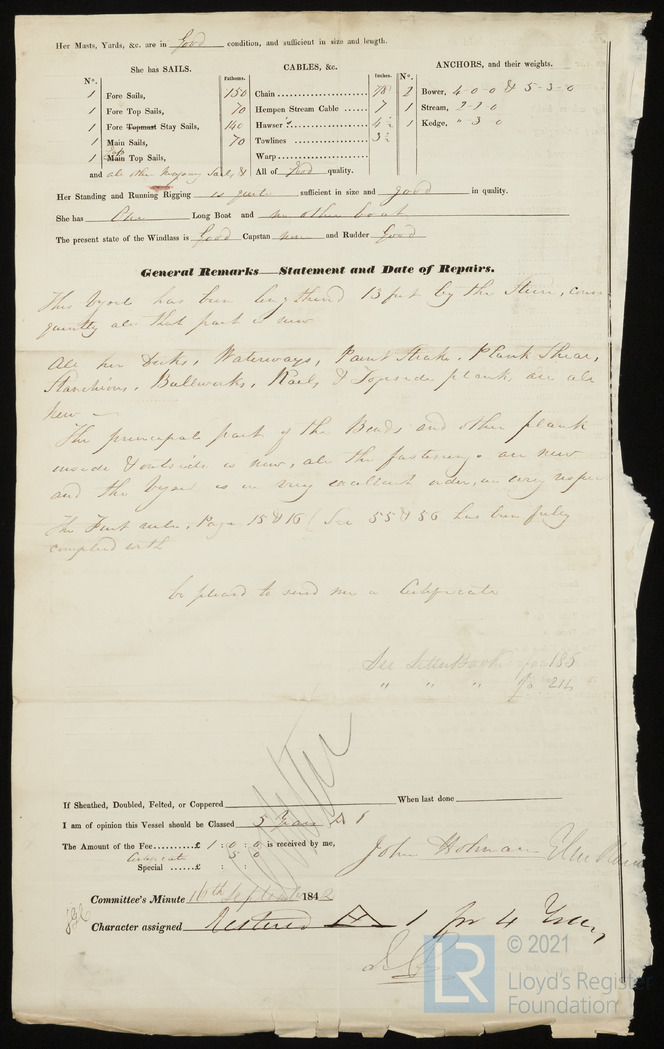 Her Masts, Yards, &c. are in Good condition, and sufficient in size and length.
She has SAILS.
CABLES, &c.
ANCHORS, and their weights.
N°. Fathoms. Inches. N°.
1 Fore Sails, 150 Chain 7/8 2 Bower, 4-0-0 & 5-3-0
1 Fore Top Sails, 70 Hempen Stream Cable 7 1 Stream, 2-2-0
1 Fore Topmast Stay Sails, 140 Hawser 4 1/2 1 Kedge, " 3 0
1 Main Sails, 70 Towlines 3 1/2
1 Main Top Sails, Warp
and all other Sails & All of Good quality.
Her Standing and Running Rigging is quite sufficient in size and good in quality.
She has One Long Boat and no other boat
The present state of the Windlass is Good Capstan none and Rudder Good
General Remarks—Statement and Date of Repairs.
This Vessel has been lengthened 13 feet by the Stern, conse
quently all that part is new
All her Decks, Waterways, Paint Strake, Plank Shear,
Stanchions, Bullworks, Rails, & Topside plank, are all
New —
The principal part of the Bends and other plank
inside & outside is new, all the fastenings are new
and the Vessel is in very excellent order, in every respec
The rules, Page 15 & 16 (Sec 55 & 56 has been fully
complied with
be pleased to send me a Certificate
See Letter Book 185
" " " fo 214
If Sheathed, Doubled, Felted, or Coppered When last done
I am of opinion this Vessel should be Classed 5 Years A 1
The Amount of the Fee £ 1 : 0 : 0 is received by me,
Certificate 5 0
Special £ : :
John Holman
Committee's Minute 16th September 1842
Character assigned Restored A 1 for 4 Years
LR
© 2021
Lloyd's Register
Foundation